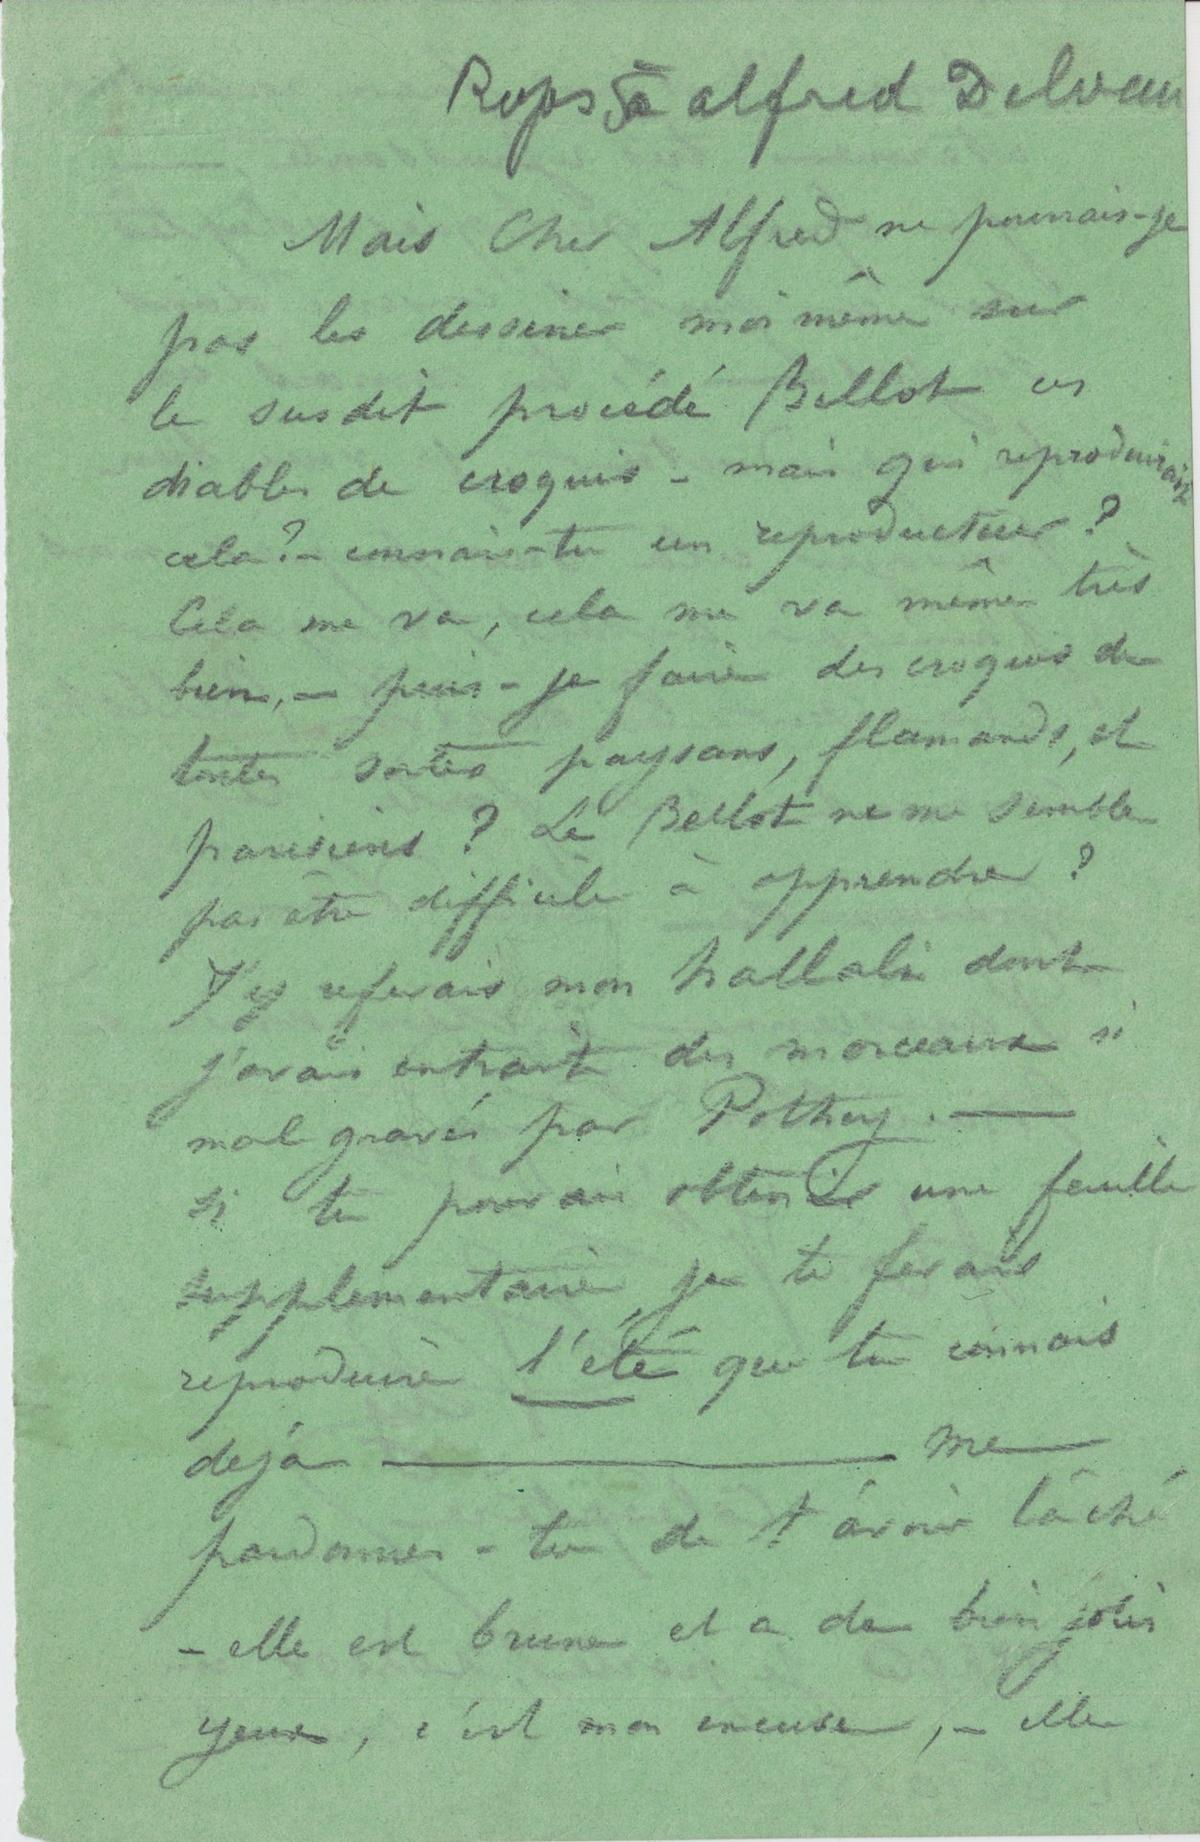 Rops à Alfred Delvau
Mais Cher Alfred ne pourrais-je
pas les dessiner moi même sur
le susdit procédé Bellot ces
diables de croquis - mais qui reproduirait
cela ? - connais-tu un reproducteur ?
Cela me va, cela me va même très
bien, - puis-je faire des croquis de
toutes sortes paysans, flamands, et
parisiens ? Le Bellot ne me semble
pas être difficile à apprendre ?
J'y referais mon hallali dont
j'avais extrait des morceaux si
mal gravés par Pothey. —
si tu pouvais obtenir une feuille
supplémentaire je te ferais
reproduire l'été que tu connais
déjà — me
pardonnes-tu de t'avoir lâché
- elle est brune et a de bien jolis
yeux, c'est mon excuse, - elle